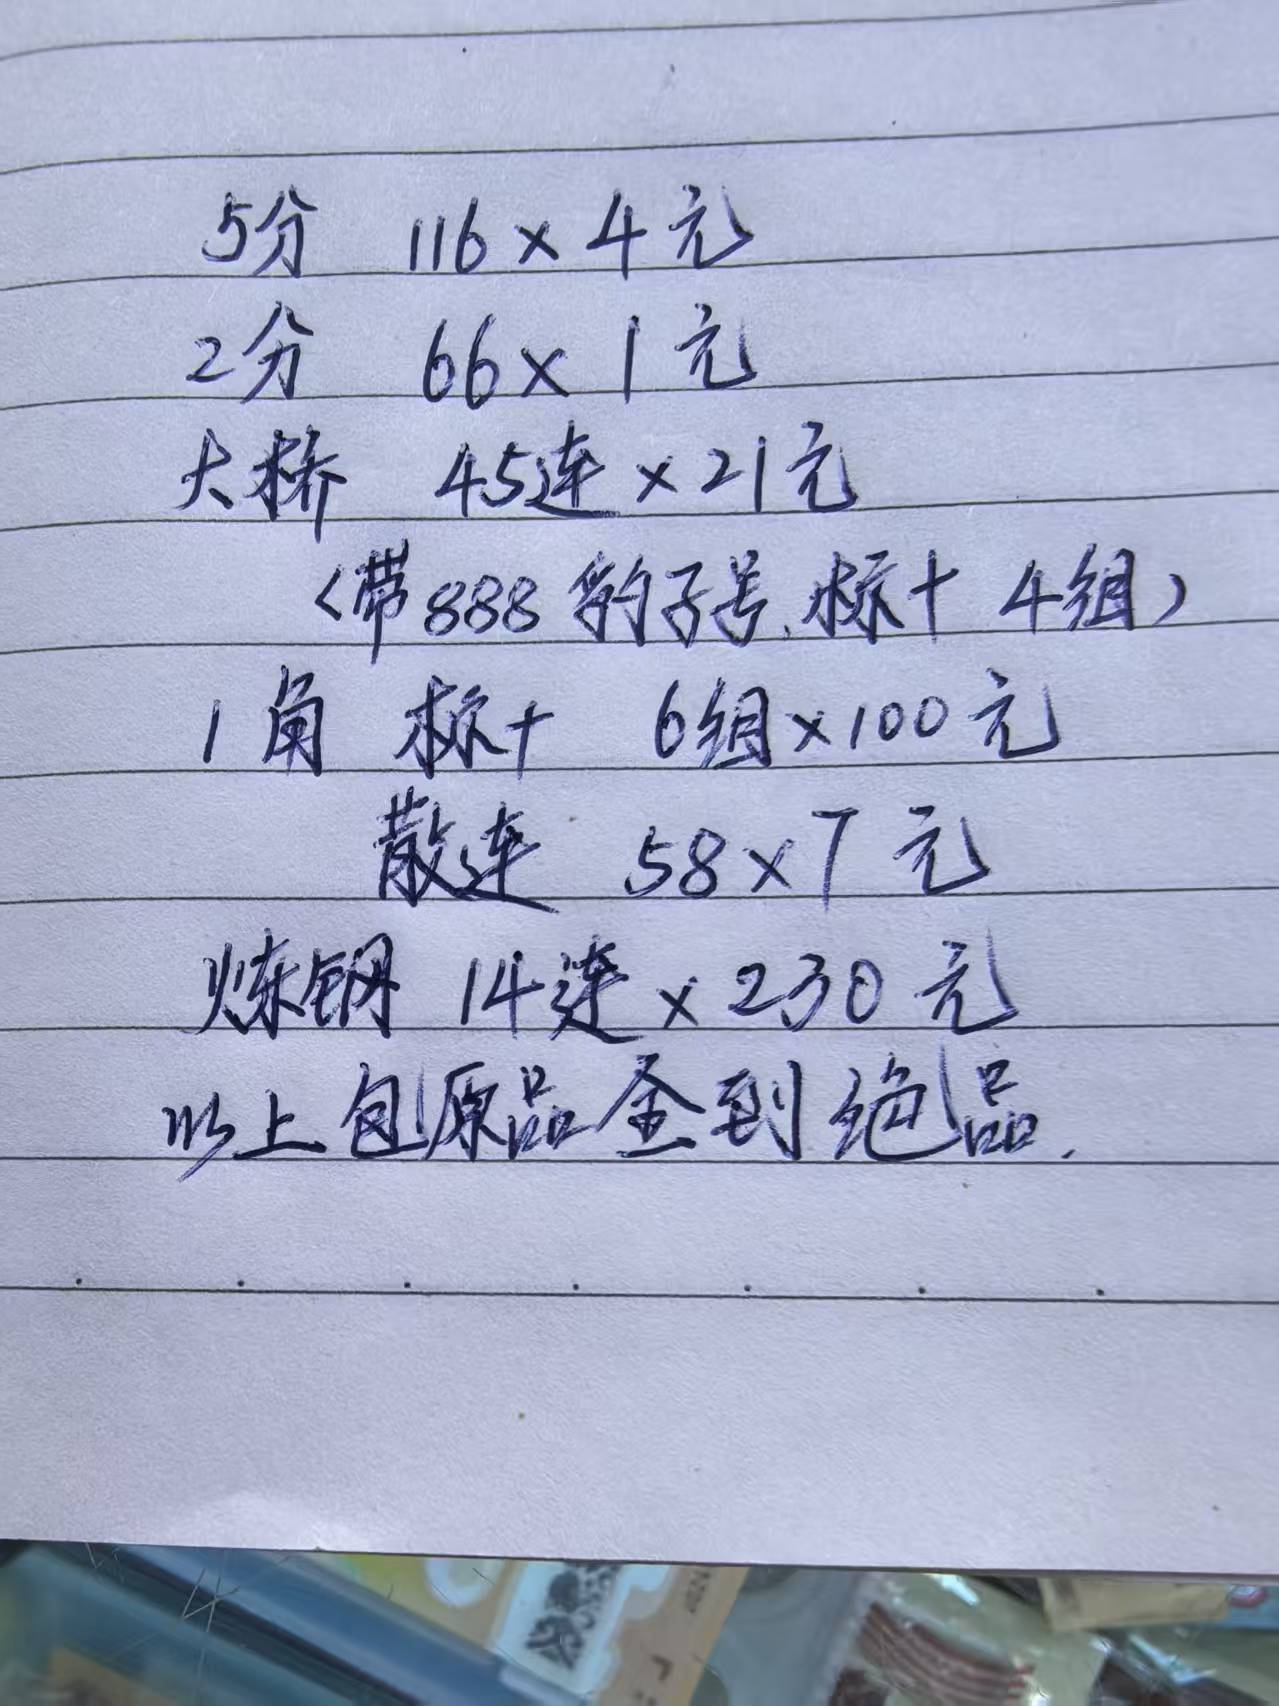 5分 116×4元
2分 66×1元
大桥 45连×21元
(带888豹子号、标十 4组)
1角 标十 6组×100元
散连 58×7元
炼钢 14连×230元
以上包原品全到绝品.